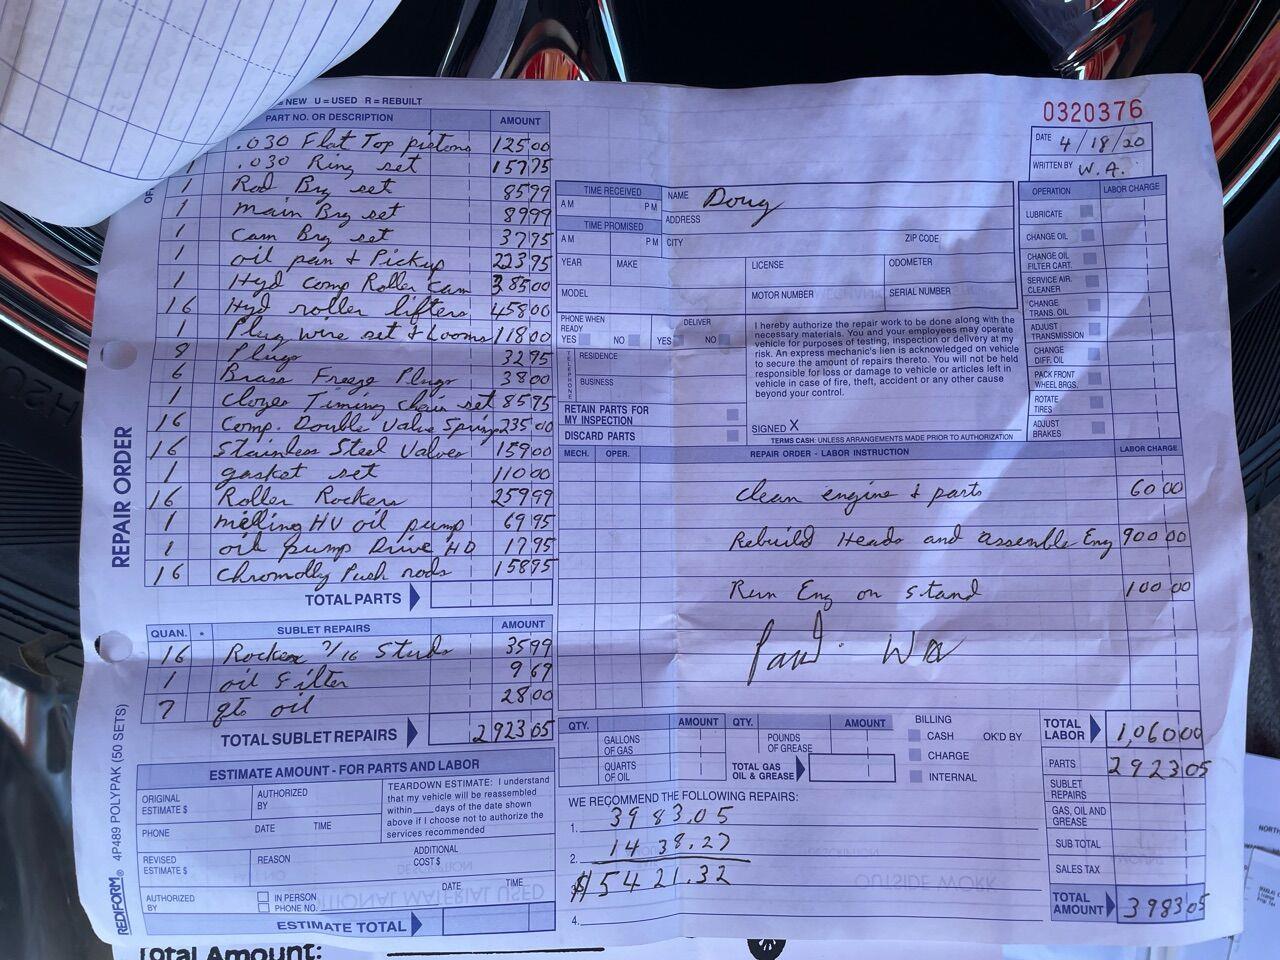 NEW U = USED R = REBUILT
PART NO. OR DESCRIPTION AMOUNT
.030 Flat Top pistons 125 00
1 .030 Ring set 157 75
1 Rod Brg set 85 99
1 main Brg set 89 99
1 Cam Brg set 37 95
1 oil pan & Pickup 223 95
1 Hyd comp Roller cam 385 00
16 Hyd roller lifters 458 00
1 Plug wire set & Looms 118 00
8 Plugs 32 95
6 Brass Freeze Plugs 38 00
1 Cloyes Timing chain set 85 95
16 Comp. Double Valve Springs 235 00
16 Stainless Steel Valves 159 00
1 gasket set 110 00
16 Roller Rockers 259 99
1 melling HV oil pump 69 95
1 oil pump Drive HD 17 95
16 Chromolly Push rods 158 95
TOTAL PARTS
QUAN. * SUBLET REPAIRS AMOUNT
16 Rocker 7/16 Studs 35 99
1 oil filter 9 69
7 qts oil 28 00
TOTAL SUBLET REPAIRS 2923 05
ESTIMATE AMOUNT - FOR PARTS AND LABOR
ORIGINAL ESTIMATE $
AUTHORIZED BY
TEARDOWN ESTIMATE: I understand
that my vehicle will be reassembled
within ____ days of the date shown
above if I choose not to authorize the
services recommended
PHONE DATE TIME
REVISED ESTIMATE $
REASON
ADDITIONAL COST $
AUTHORIZED BY
IN PERSON
PHONE NO.
DATE TIME
ESTIMATE TOTAL
REPAIR ORDER
REDIFORM® 4P489 POLYPAK (50 SETS)
0320376
DATE 4/18/20
WRITTEN BY W.A.
TIME RECEIVED
AM PM
TIME PROMISED
AM PM
NAME Doug
ADDRESS
CITY ZIP CODE
YEAR MAKE LICENSE ODOMETER
MODEL MOTOR NUMBER SERIAL NUMBER
PHONE WHEN READY
YES NO
DELIVER
YES NO
TELEPHONE
RESIDENCE
BUSINESS
RETAIN PARTS FOR MY INSPECTION
DISCARD PARTS
I hereby authorize the repair work to be done along with the
necessary materials. You and your employees may operate
vehicle for purposes of testing, inspection or delivery at my
risk. An express mechanic's lien is acknowledged on vehicle
to secure the amount of repairs thereto. You will not be held
responsible for loss or damage to vehicle or articles left in
vehicle in case of fire, theft, accident or any other cause
beyond your control.
SIGNED X
TERMS CASH: UNLESS ARRANGEMENTS MADE PRIOR TO AUTHORIZATION
OPERATION LABOR CHARGE
LUBRICATE
CHANGE OIL
CHANGE OIL FILTER CART.
SERVICE AIR CLEANER
CHANGE TRANS. OIL
ADJUST TRANSMISSION
CHANGE DIFF. OIL
PACK FRONT WHEEL BRGS.
ROTATE TIRES
ADJUST BRAKES
MECH. OPER. REPAIR ORDER - LABOR INSTRUCTION LABOR CHARGE
Clean engine & parts 60 00
Rebuild Heads and assemble Eng 900 00
Run Eng on stand 100 00
Paid. WA
QTY. AMOUNT QTY. AMOUNT
GALLONS OF GAS
POUNDS OF GREASE
QUARTS OF OIL
TOTAL GAS OIL & GREASE
BILLING
CASH OK'D BY
CHARGE
INTERNAL
TOTAL LABOR 1,060 00
PARTS 2923 05
SUBLET REPAIRS
GAS, OIL AND GREASE
SUB TOTAL
SALES TAX
TOTAL AMOUNT 3983 05
WE RECOMMEND THE FOLLOWING REPAIRS:
1. 3983.05
2. 1438.27
3. $5421.32
4.
Total Amount: